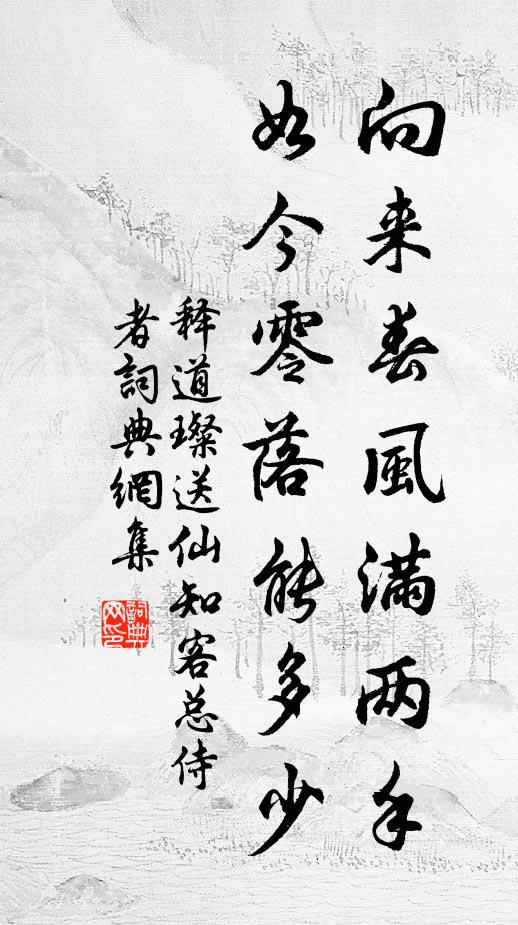 向来春風满两手
如今零落能多少
释道璨送仙知客总侍
者詞典網集
詞典
网印